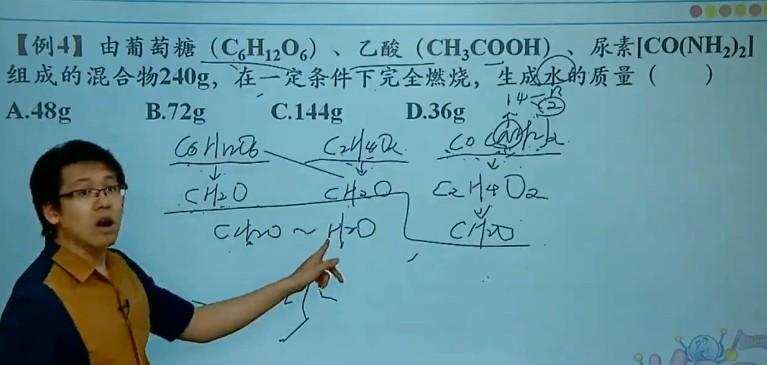 【例4】由葡萄糖（C₆H₁₂O₆）、乙酸（CH₃COOH）、尿素[CO(NH₂)₂]
组成的混合物240g，在一定条件下完全燃烧，生成水的质量（ ）
A.48g B.72g C.144g D.36g
14
C6H12O6 C2H4O2 CO
CH2O CH2O C2H4O2
CH2O ~ H2O CH2O